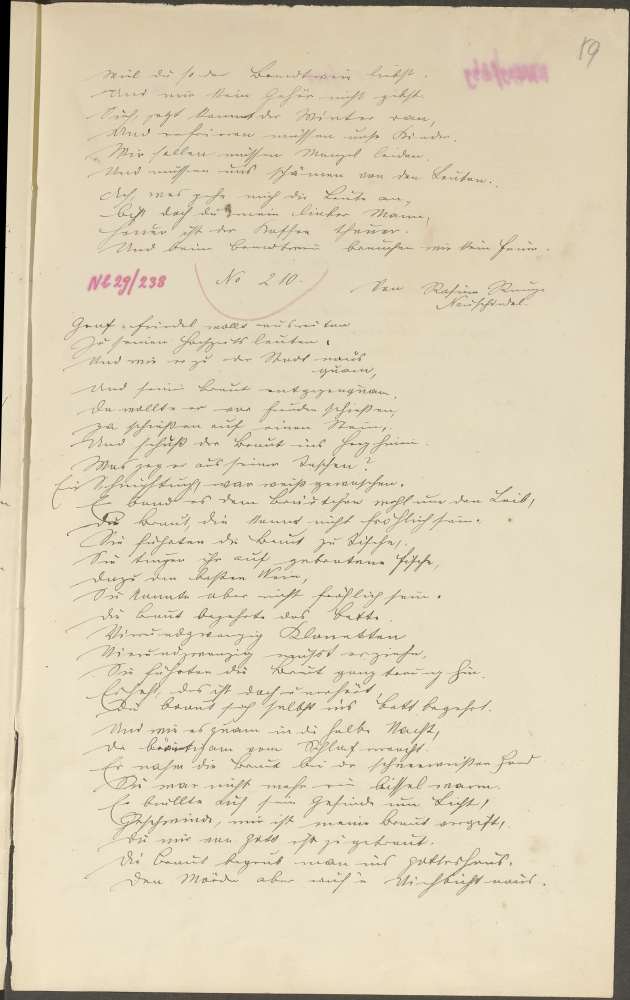 89
Weil du so den Branntwein liebst.
Und mir kein Gehör nicht gibst.
Such, jetzt kommt der Winter ran,
Und erfrieren müssen unsre Kinder.
Wir sollen müssen Mangel leiden.
Und müssen uns schämen von den Leuten.
Ach, was gehn mich die Leute an,
bist doch du mein lieber Mann,
ist der Kaffee theuer.
Und beim Branntwein brauchen wir kein Feuer.
NE 29/238
No 210.
Von
Graf Friedel wollt ausreiten
Zu seinen Hochzeitsleuten.
Und wie er zu der Stadt naus
quam,
Und seine Braut entgegenquam,
Da wollte er vor Freuden schießen,
Ja schießen auf einen Stein,
Und schuß der Braut ins Herz hinein.
Was zog er aus seiner Taschen?
Ein Schnichtuch, war weiß gewaschen.
Er band es dem Bräutchen wohl um den Leib,
Die Braut, die konnt nicht fröhlich sein.
Sie führten die Braut zu Tische,
Sie trugen ihr auf gebratene Fische,
Dazu den besten Wein,
Sie konnte aber nicht fröhlich sein.
Die Braut begehrte das Bette.
Vierundzwanzig
Vierundzwanzig
Sie führten die Braut ganz traurig hin.
das ist doch unerhört,
Die Braut sich selbst ins Bett begehrt.
Und wie es quam in di halbe Nacht,
Da Bräutgam vom Schlaf erwacht.
Er nahm die Braut bei der schneeweißen Hand
Sie war nicht mehr ein bissel warm.
Er brüllte auf sein Gesinde um Licht,
Geschwinde, mir ist meine Braut
Die mir von Gott ist zugetraut.
Die Braut begrub man ins Gotteshaus.
Den Mörder aber